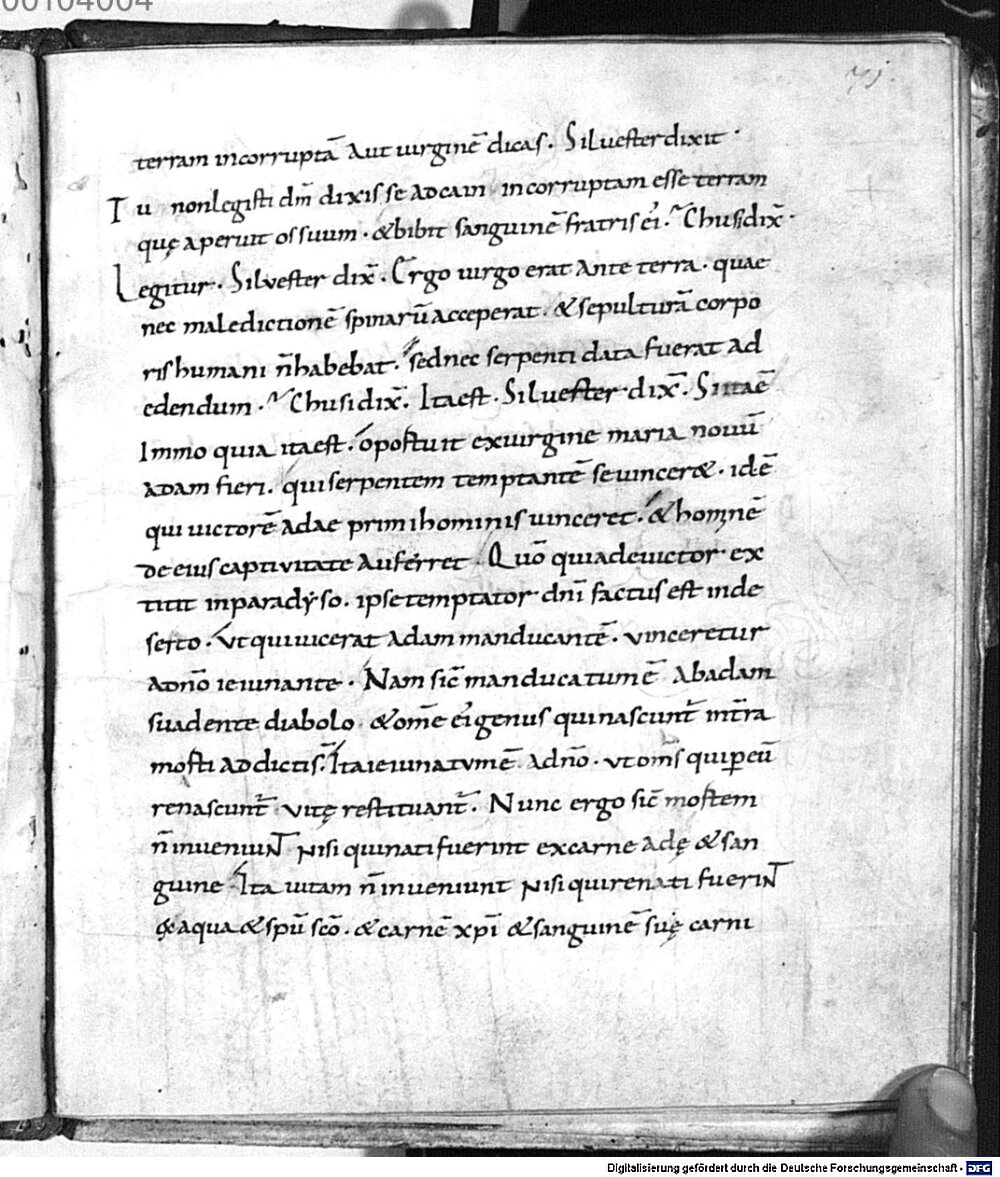 00104004
71.
terram incorruptā aut uirginē dicas. Siluester dixit.
Tu non legisti dm̄ dixisse ad cain incorruptam esse terram
quę aperuit os suum. & bibit sanguinē fratris ei'. Chusi dix̄.
Legitur. Silvester dix̄. Ergo uirgo erat ante terra. quae
nec maledictionē spinarū acceperat. & sepulturā corpo
ris humani n̄ habebat. sed nec serpenti data fuerat ad
edendum. Chusi dix̄. Ita est. Siluester dix̄. Si ita ē
Immo quia ita est. oportuit ex uirgine maria nouū
adam fieri. qui serpentem temptantē se uincer&. idē
qui uictorē adae primi hominis uinceret. & hominē
de eius captivitate auferret. Quō quia de uictor ex
titit in paradyso. ipse temptator dn̄i factus est in de
serto. Vt qui uicerat adam manducantē. vinceretur
a dn̄o ieiunante. Nam sic̄ manducatum ē ab adam
suadente diabolo. & om̄e ei' genus qui nascunt̄ intra
morti addicti s̄. Ita ieiunatvm ē a dn̄o. vt om̄s qui p̲ eū
renascunt̄ vitę restituant̄. Nunc ergo sic̄ mortem
n̄ inueniunt nisi qui nati fuerint ex carne adę & san
guine. Ita uitam n̄ inueniunt nisi qui renati fuerint
ex aqua & spū scō. & carnē xp̄i & sanguinē suę carni
Digitalisierung gefördert durch die Deutsche Forschungsgemeinschaft - DFG